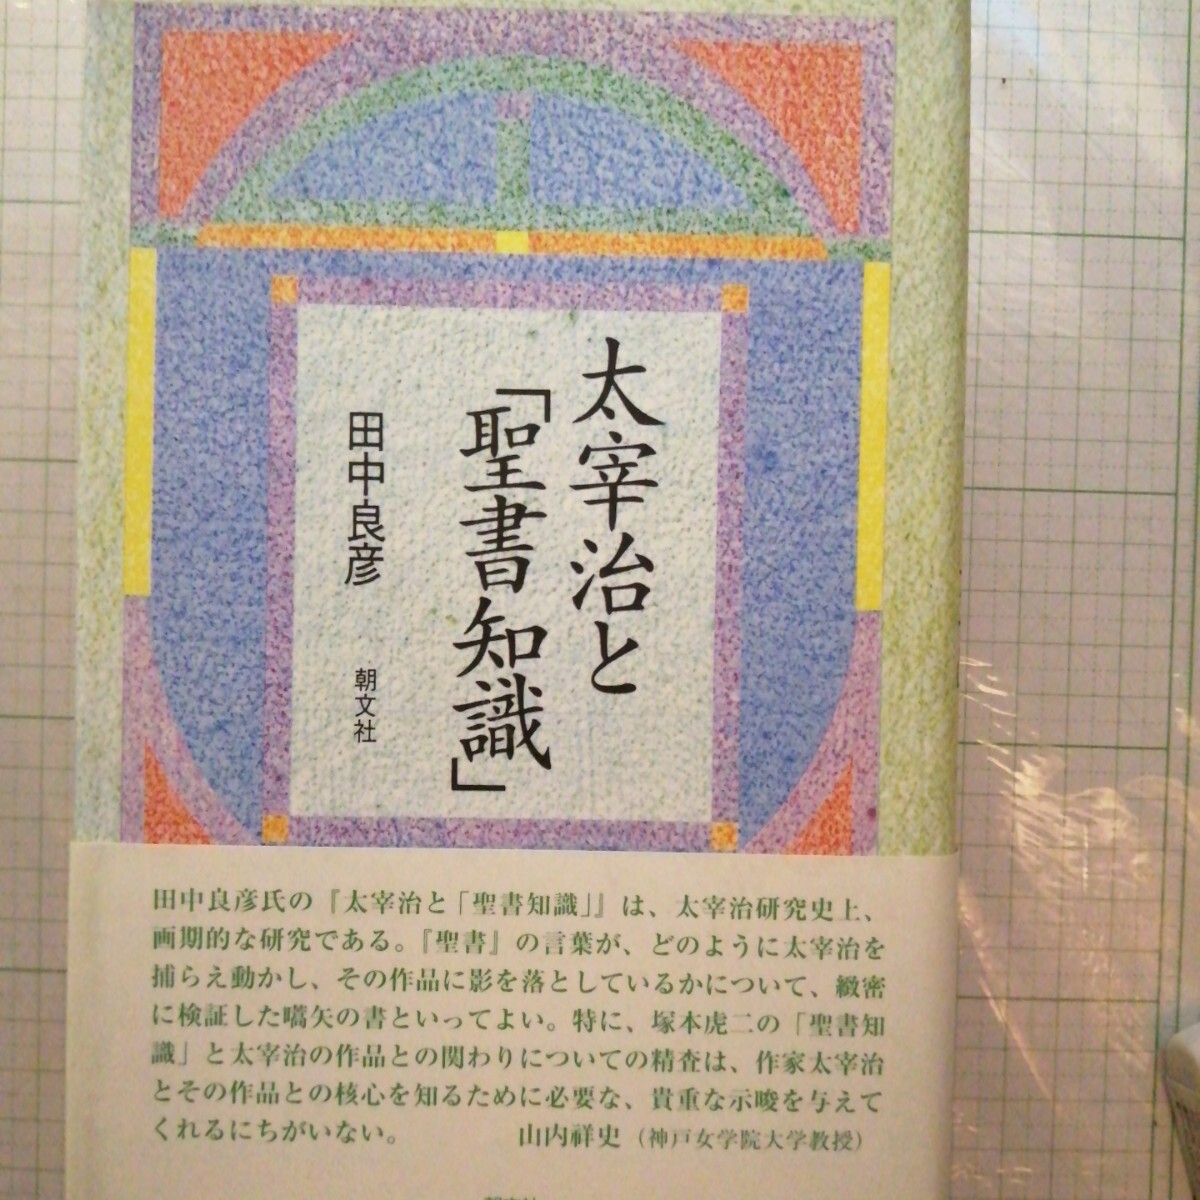 太宰治と
「聖書知識」
田中良彦
朝文社
田中良彦氏の『太宰治と「聖書知識」』は、太宰治研究史上、
画期的な研究である。『聖書』の言葉が、どのように太宰治を
捕らえ動かし、その作品に影を落としているかについて、緻密
に検証した嚆矢の書といってよい。特に、塚本虎二の「聖書知
識」と太宰治の作品との関わりについての精査は、作家太宰治
とその作品との核心を知るために必要な、貴重な示唆を与えて
くれるにちがいない。 山内祥史（神戸女学院大学教授）